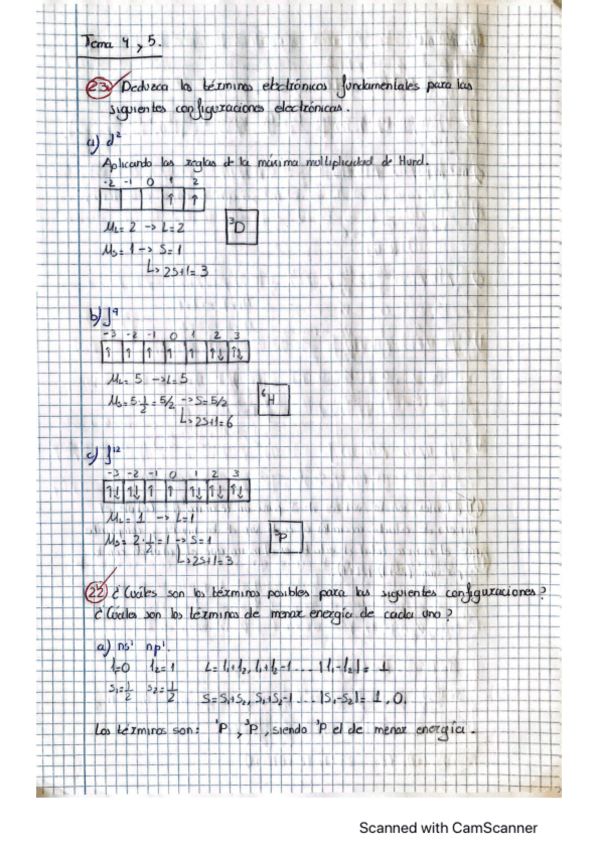 Tema 4 y 5.
23 Deduzca los términos electrónicos fundamentales para las
siguientes configuraciones electrónicas.
a) d²
Aplicando las reglas de la máxima multiplicidad de Hund.
-2 -1 0 1 2
↑ ↑
M_L= 2 -> L=2
³D
M_S= 1 -> S=1
L> 2S+1= 3
b) f⁹
-3 -2 -1 0 1 2 3
↑ ↑ ↑ ↑ ↑ ↑↓ ↑↓
M_L= 5 -> L=5
M_S= 5·1/2= 5/2 -> S=5/2
⁶H
L> 2S+1= 6
c) f¹²
-3 -2 -1 0 1 2 3
↑↓ ↑↓ ↑ ↑ ↑↓ ↑↓ ↑↓
M_L= 1 -> L=1
M_S= 2·1/2= 1 -> S=1
³P
L> 2S+1= 3
22 ¿Cuáles son los términos posibles para las siguientes configuraciones?
¿Cuáles son los términos de menor energía de cada uno?
a) ns¹ np¹.
l₁=0 l₂=1 L= l₁+l₂, l₁+l₂-1 ... |l₁-l₂|= 1
S₁=1/2 S₂=1/2 S=S₁+S₂, S₁+S₂-1 ... |S₁-S₂|= 1, 0.
Los términos son: ¹P, ³P, siendo ³P el de menor energía.
Scanned with CamScanner